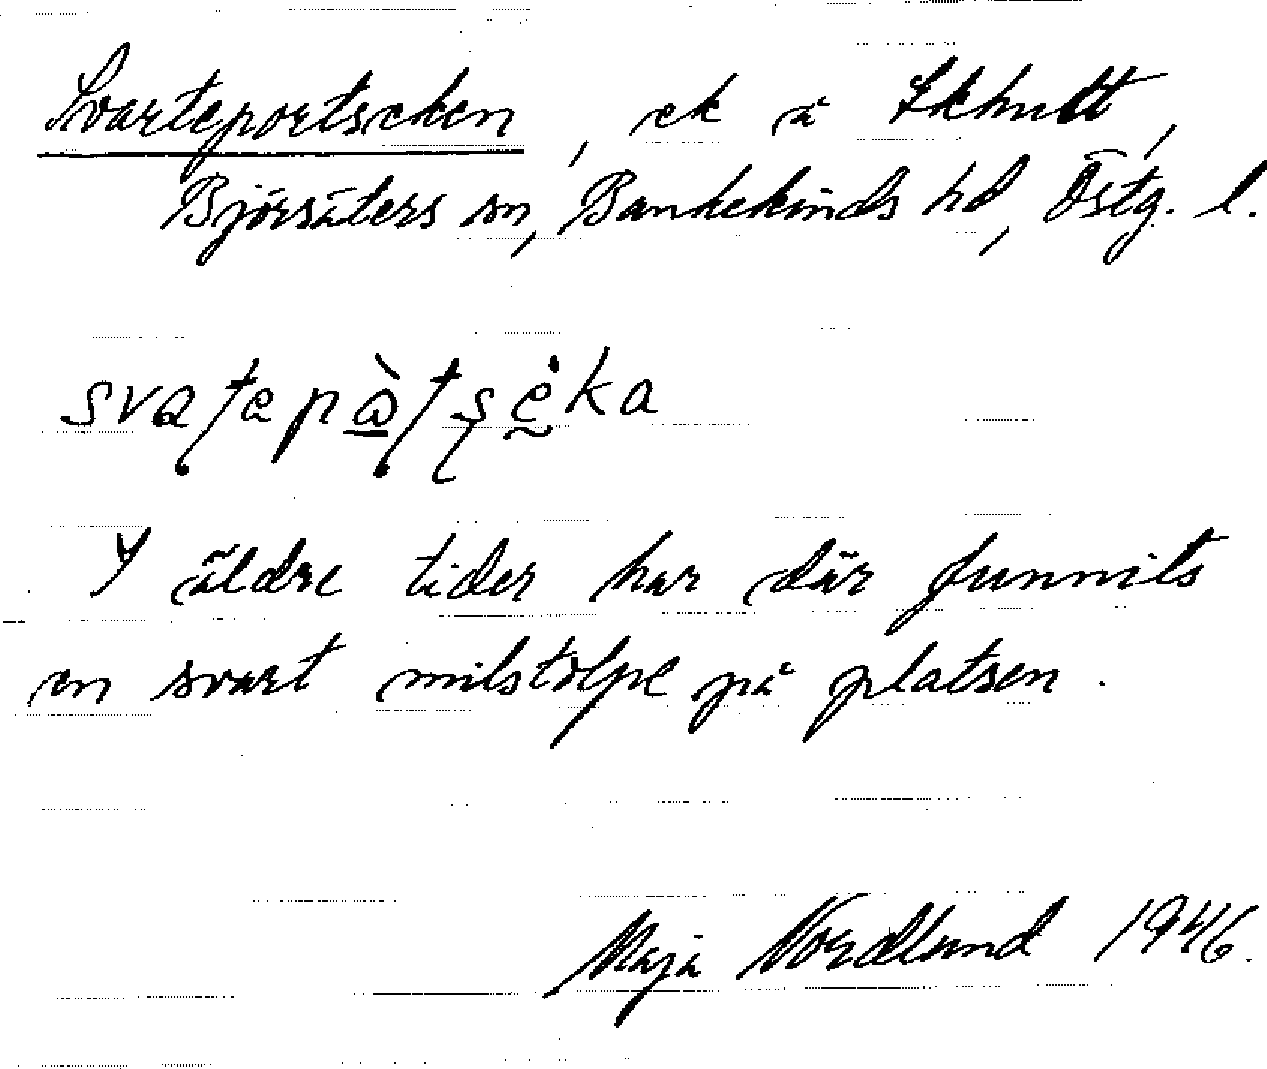 Svarteportseken, ek å Ekhult,
Björsäters sn, Bankekinds hd, Östg. l.
I äldre tider har där funnits
en svart milstolpe på platsen.
Maja Nordlund 1946.